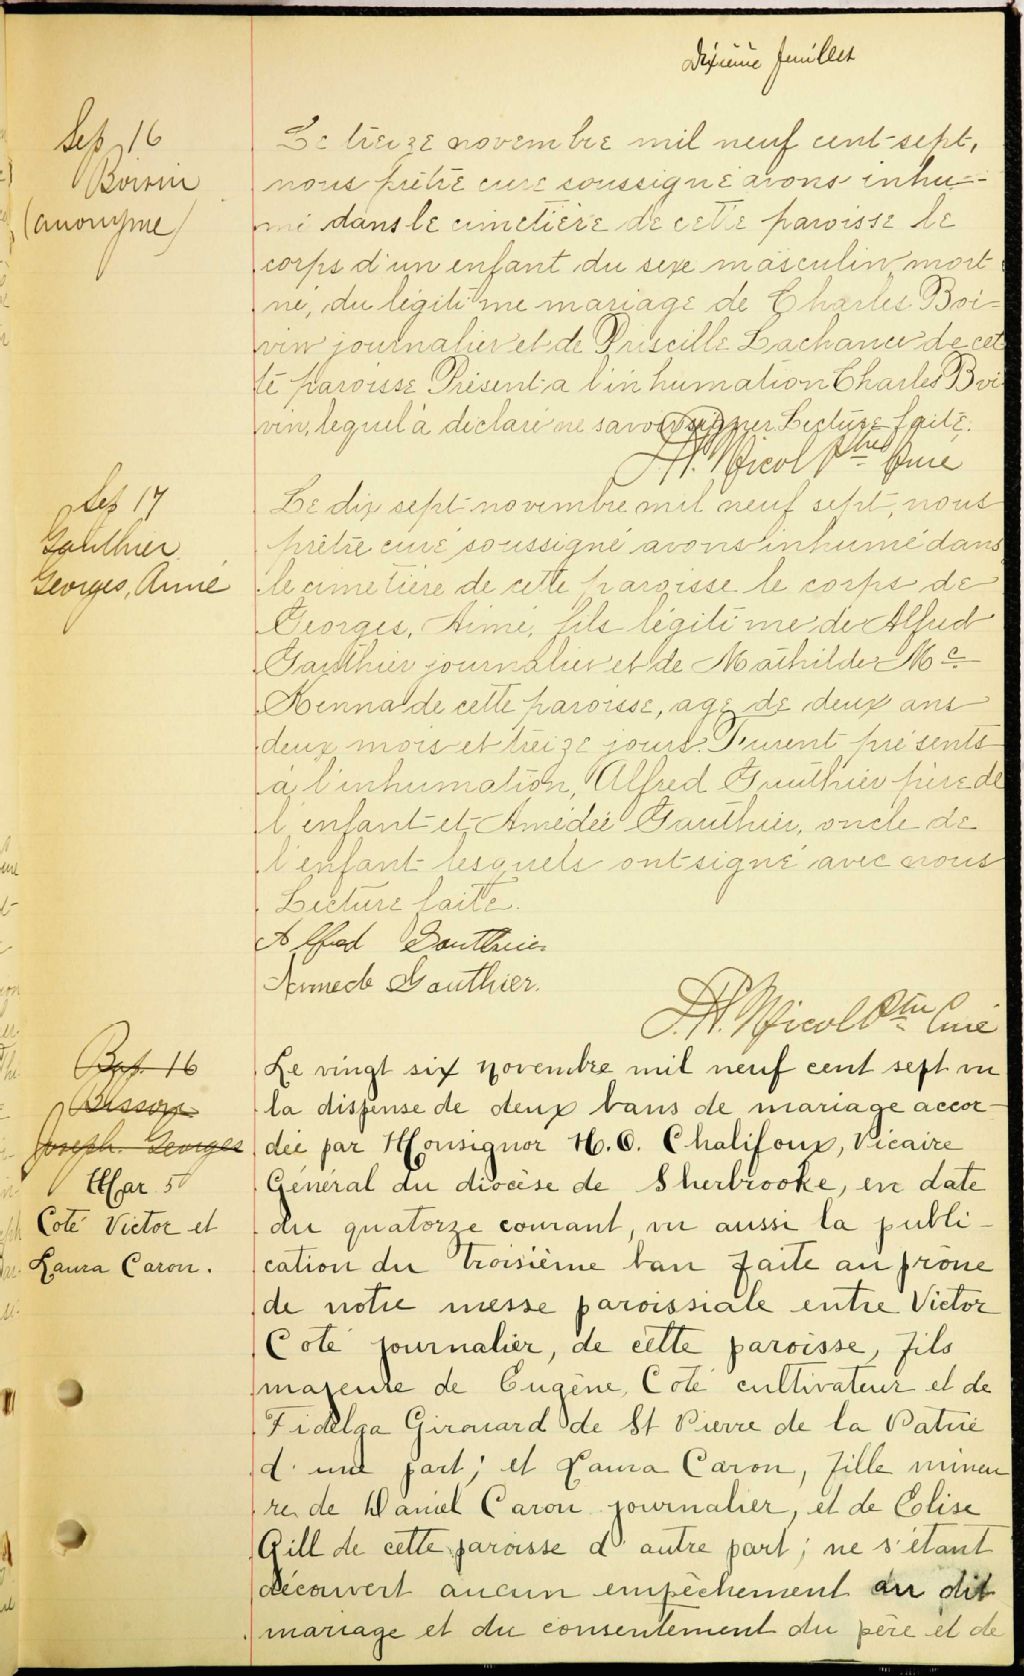 Dixième feuillet
Sep 16
Boivin
(anonyme)
Le treize novembre mil neuf cent sept,
nous prêtre curé soussigné avons inhu-
mé dans le cimetière de cette paroisse le
corps d'un enfant du sexe masculin mort
né, du légitime mariage de Charles Boi-
vin journalier et de Priscille Lachance de cet
te paroisse Présent a l'inhumation Charles Boi
vin, lequel a déclaré ne savoir signer Lecture faite.
Nicol Ptre Curé
Sep 17
Gauthier
Georges, Aimé
Le dix sept novembre mil neuf sept, nous
prêtre curé soussigné avons inhumé dans
le cimetière de cette paroisse le corps de
Georges, Aimé, fils légitime de Alfred
Gauthier journalier et de Mathilde Mc
Kenna de cette paroisse, age de deux ans
deux mois et treize jours. Furent présents
à l'inhumation, Alfred Gauthier père de
l'enfant et Amédée Gauthier, oncle de
l'enfant lesquels ont signé avec nous
Lecture faite.
Alfred Gauthier
Amede Gauthier.
Nicol Ptre Curé
Bap. 16
Bisson
Joseph Georges
Mar 5
Coté Victor et
Laura Caron.
Le vingt six novembre mil neuf cent sept vu
la dispense de deux bans de mariage accor-
dée par Monsignor H. O. Chalifoux, Vicaire
Général du diocèse de Sherbrooke, en date
du quatorze courant, vu aussi la publi-
cation du troisième ban faite au prône
de notre messe paroissiale entre Victor
Coté journalier, de cette paroisse, fils
majeure de Eugène, Coté cultivateur et de
Fidelga Girouard de St Pierre de la Patrie
d'une part; et Laura Caron, fille mineu
re, de Daniel Caron journalier, et de Elise
Gill de cette paroisse d'autre part; ne s'étant
découvert aucun empêchement au dit
mariage et du consentement du père et de